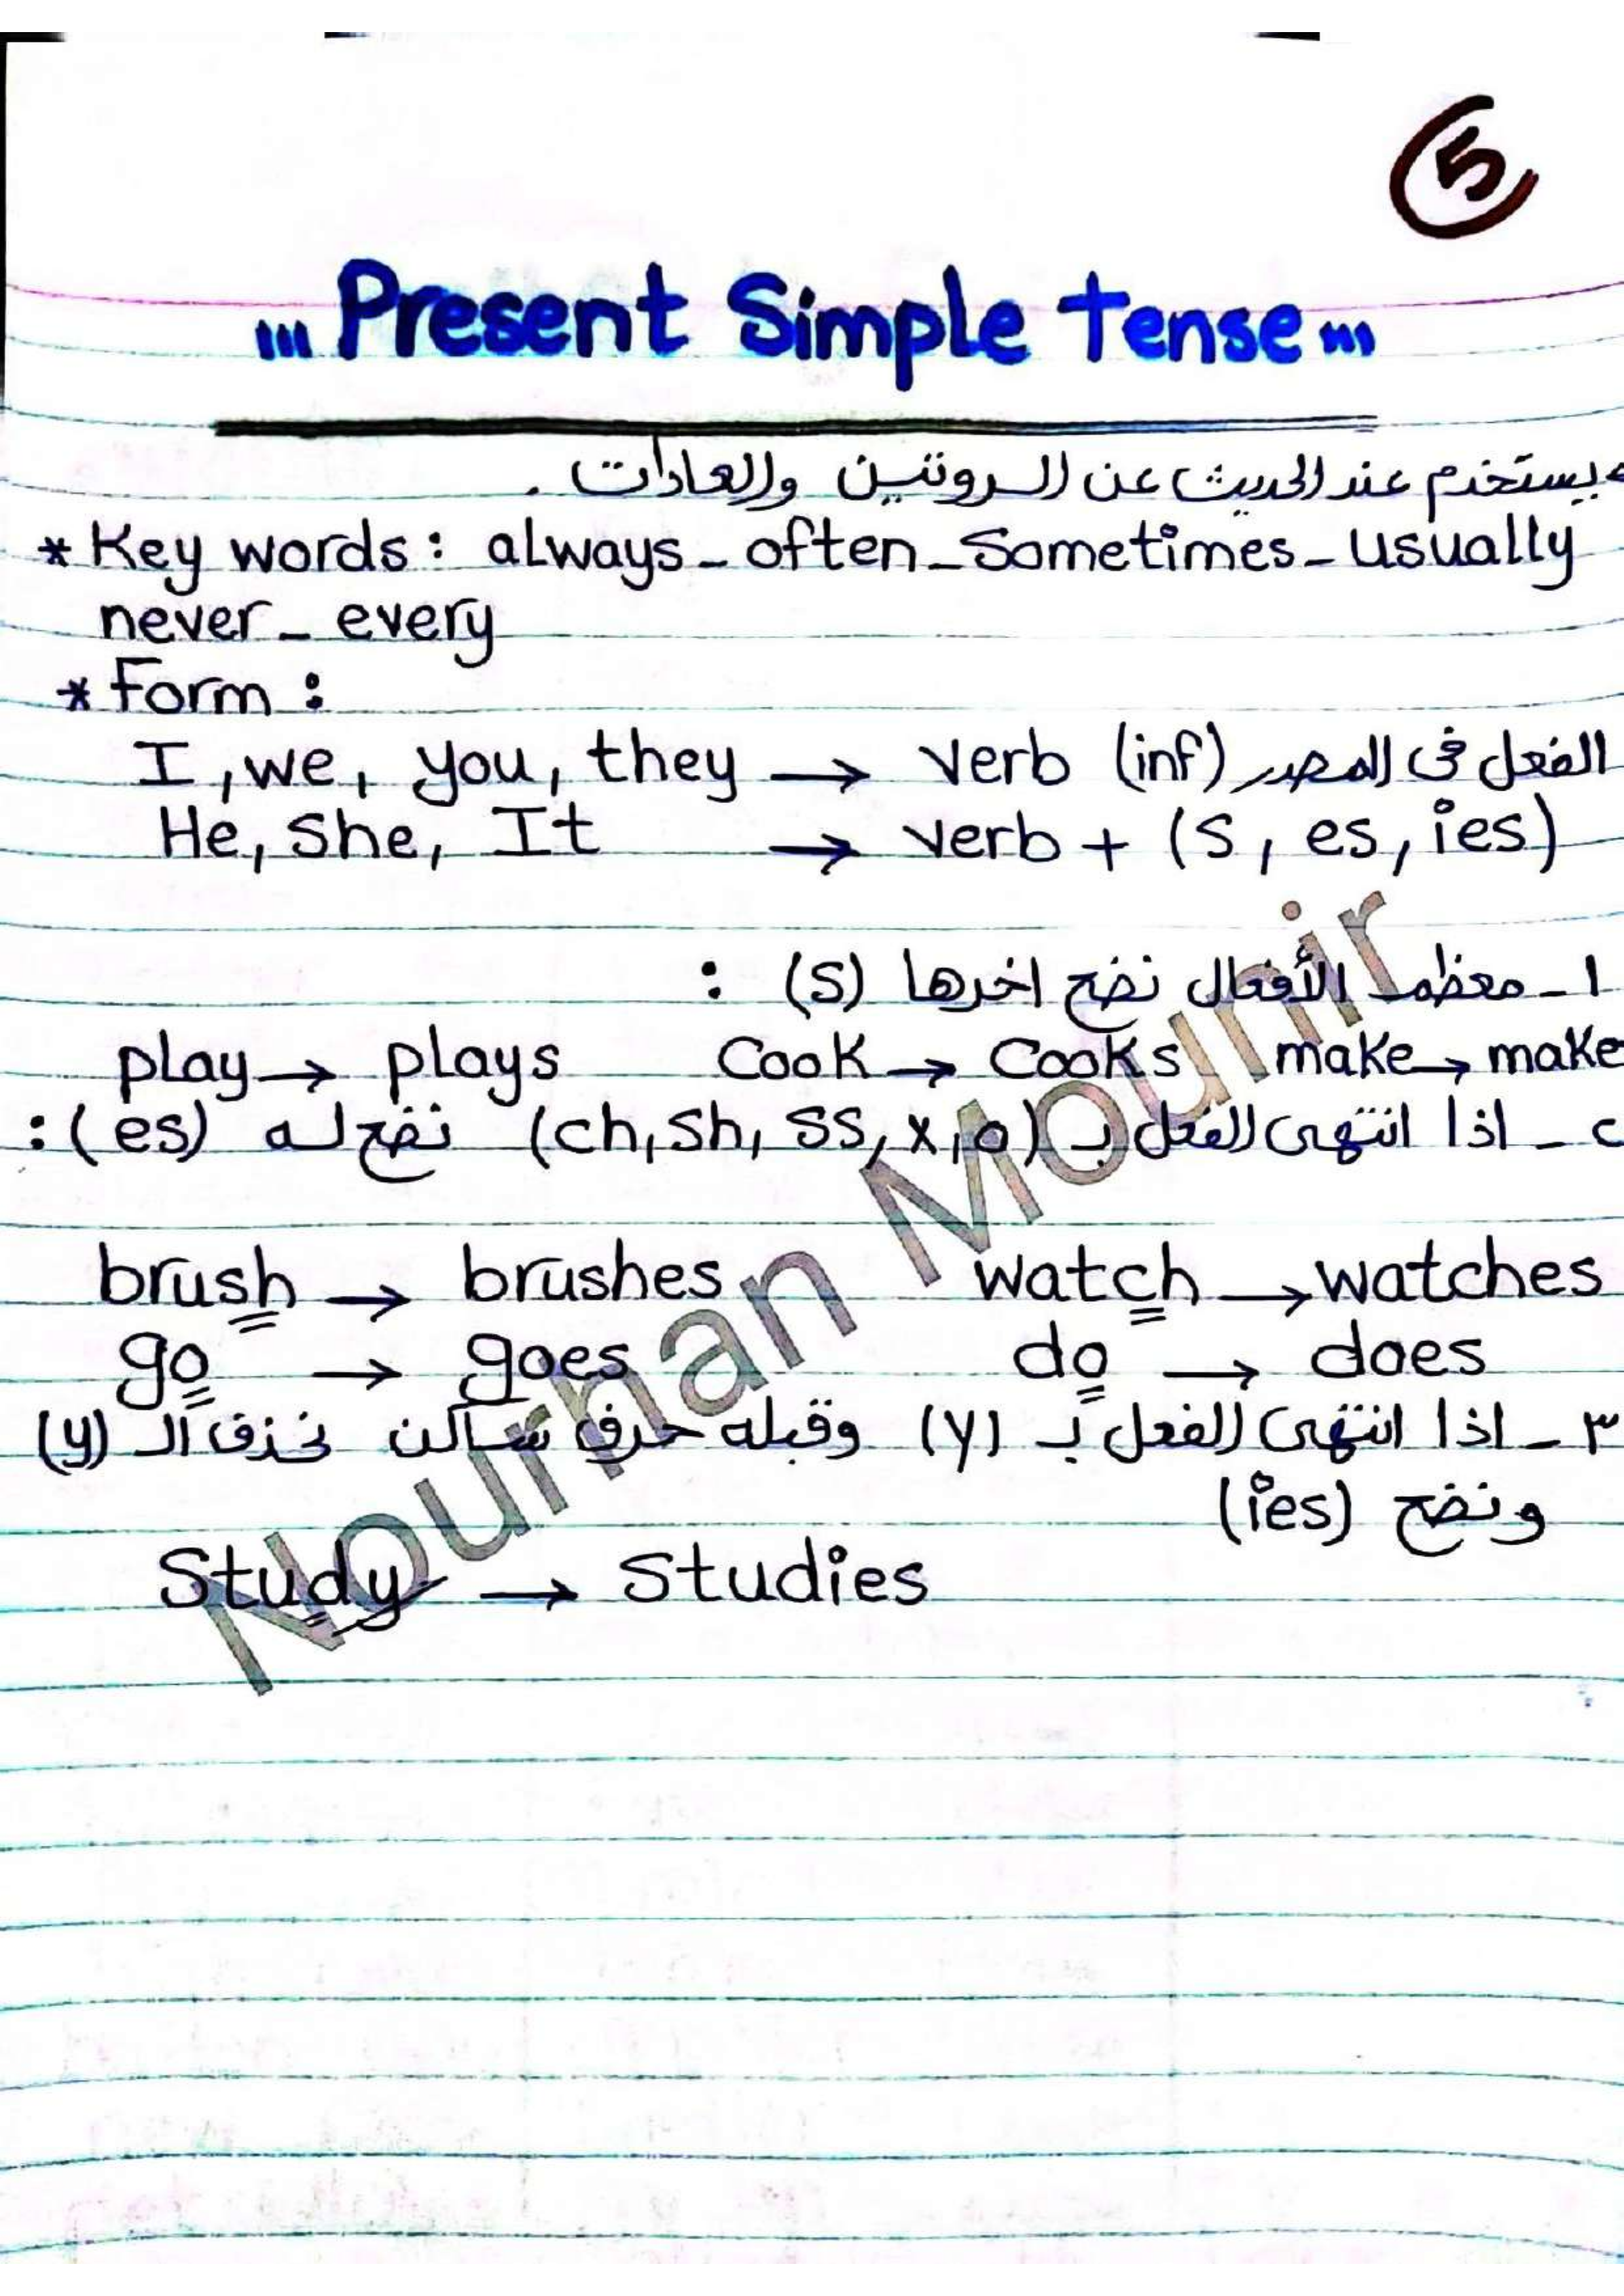 5
Present Simple Tense
يستخدم عند الحديث عن الروتين والعادات .
* Key words : always - often - Sometimes - usually
never - every
* Form :
I , we , you , they → verb (inf) الفعل فى المصدر
He , She , It → verb + (S , es , ies)
١ - معظم الأفعال نضع اخرها (S) :
play → plays Cook → Cooks make → make
٢ - اذا انتهى الفعل بـ (ch, sh, ss, x, o) نضع له (es) :
brush → brushes watch → watches
go → goes do → does
٣ - اذا انتهى الفعل بـ (y) وقبله حرف ساكن نحذف الـ (y)
ونضع (ies)
Study → Studies
Nourhan Mounir